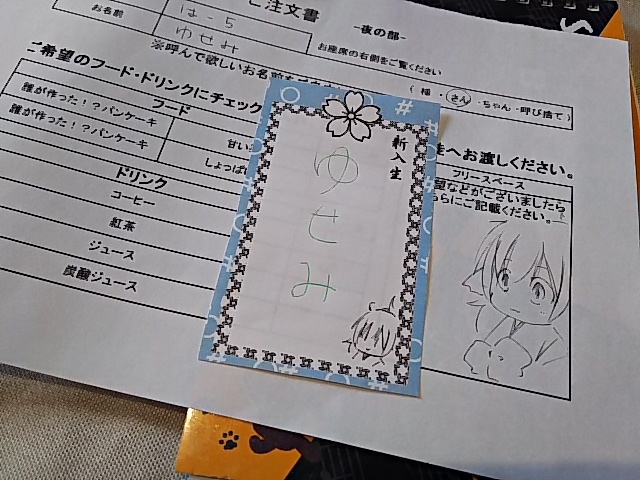 ご注文書
お名前
は-5
ゆせみ
-夜の部-
お座席の右側をご覧ください
※呼んで欲しいお名前を
(様・さん・ちゃん・呼び捨て)
ご希望のフード・ドリンクにチェック
へお渡しください。
フード
誰が作った!?パンケーキ
甘い
誰が作った!?パンケーキ
しょっぱ
ドリンク
コーヒー
紅茶
ジュース
炭酸ジュース
フリースペース
望などがございましたら
らにご記載ください。
新入生
ゆせみ